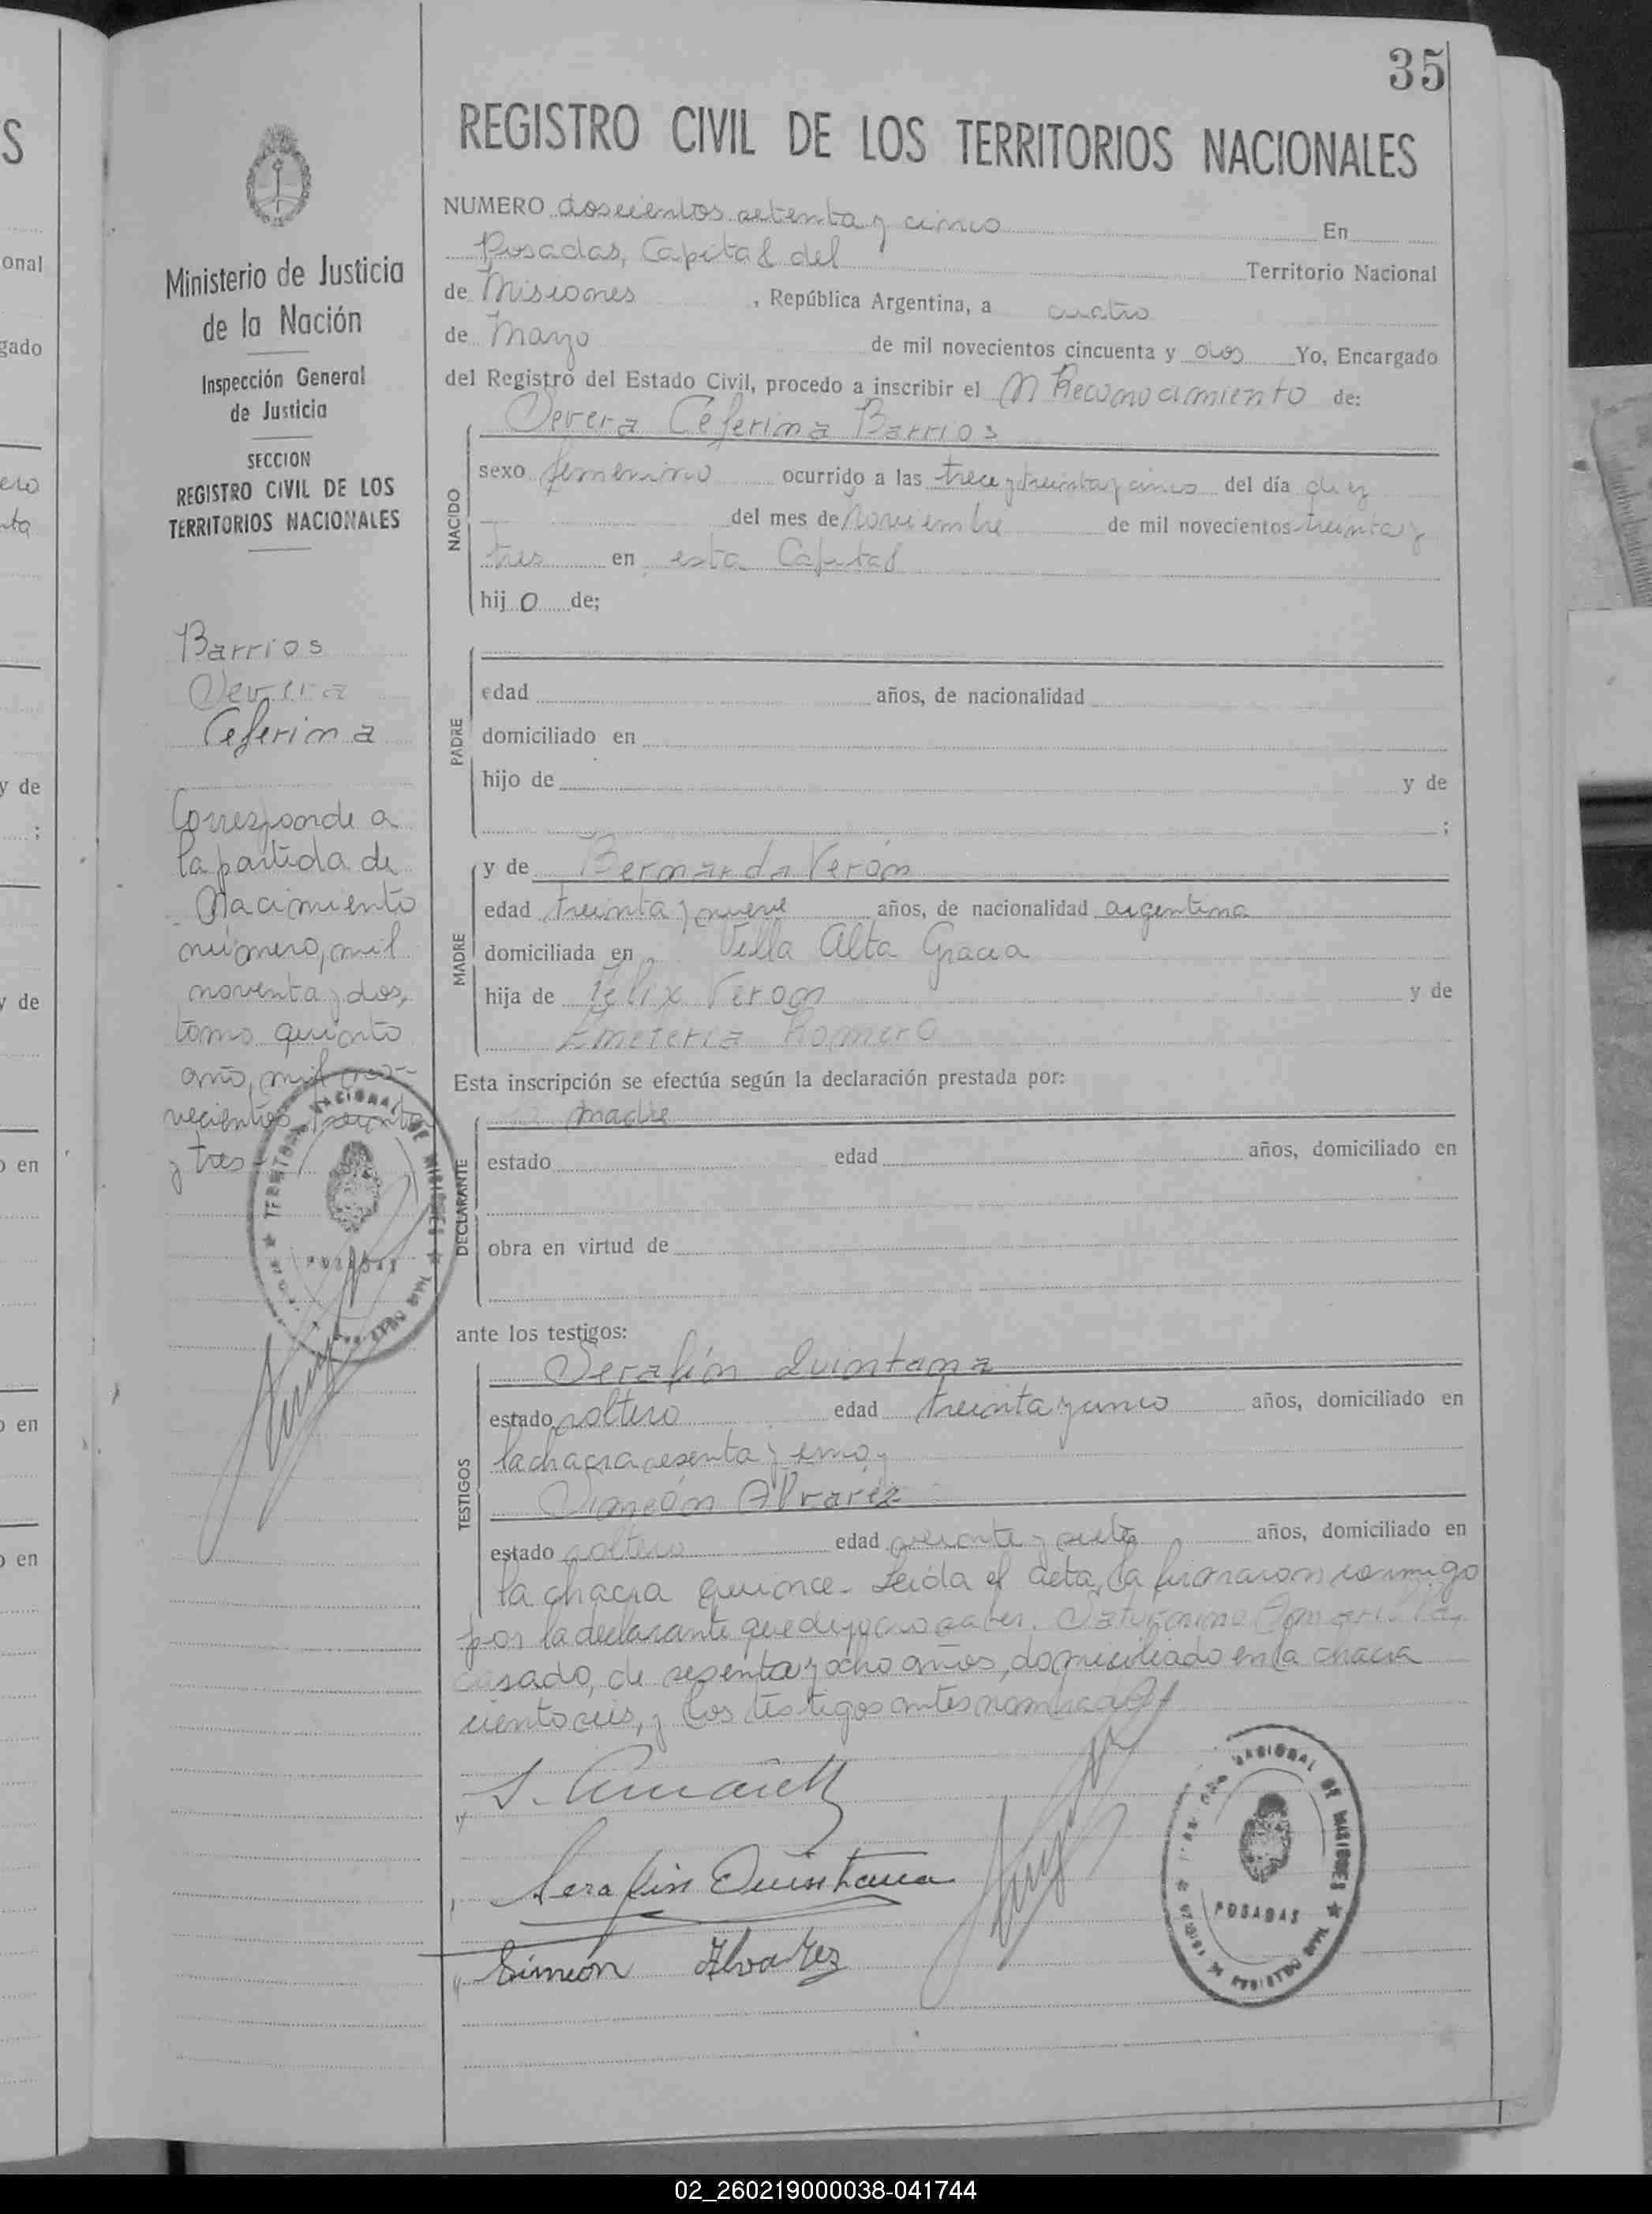 35
REGISTRO CIVIL DE LOS TERRITORIOS NACIONALES
NUMERO doscientos setenta y cinco En
Posadas, Capital del Territorio Nacional
de Misiones, República Argentina, a cuatro
de Mayo de mil novecientos cincuenta y dos Yo, Encargado
del Registro del Estado Civil, procedo a inscribir el Reconocimiento de:
Severa Ceferina Barrios
NACIDO
sexo femenino ocurrido a las trece y treinta y cinco del día diez
del mes de Noviembre de mil novecientos treinta y
tres en esta Capital
hij o de;
PADRE
edad años, de nacionalidad
domiciliado en
hijo de y de
;
MADRE
y de Bernarda Verón
edad treinta y nueve años, de nacionalidad argentina
domiciliada en Villa Alta Gracia
hija de Félix Verón y de
Emeteria Romero
Esta inscripción se efectúa según la declaración prestada por:
madre
DECLARANTE
estado edad años, domiciliado en
obra en virtud de
ante los testigos:
TESTIGOS
Serafín Quintana
estado soltero edad treinta y cinco años, domiciliado en
la chacra sesenta y uno y
Simeón Alvarez
estado soltero edad y siete años, domiciliado en
la chacra quince. Leída el acta, la firmaron conmigo
por la declarante que dijo no saber, Saturnino Amarilla,
casado, de sesenta y ocho años, domiciliado en la chacra
ciento seis, y los testigos antes nombrados
Serafin Quintana
Simeón Alvarez
NACIONAL DE MISIONES
POSADAS
Ministerio de Justicia
de la Nación
Inspección General
de Justicia
SECCION
REGISTRO CIVIL DE LOS
TERRITORIOS NACIONALES
Barrios
Severa
Ceferina
Corresponde a
la partida de
Nacimiento
número, mil
noventa y dos,
tomo quinto
año, mil no-
vecientos treinta
y tres
TERRITORIO NACIONAL DE MISIONES
POSADAS
S
onal
gado
y de
;
y de
o en
o en
o en
02_260219000038-041744